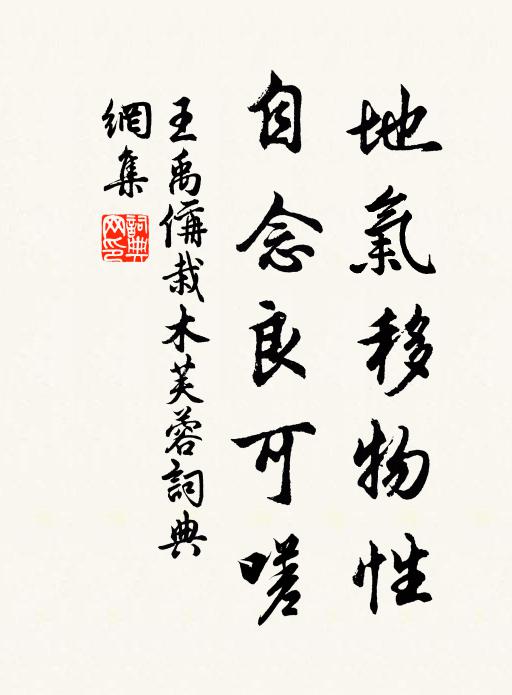 地氣移物性
自念良可嗟
王禹偁栽木芙蓉詞典
網集
詞典
网印